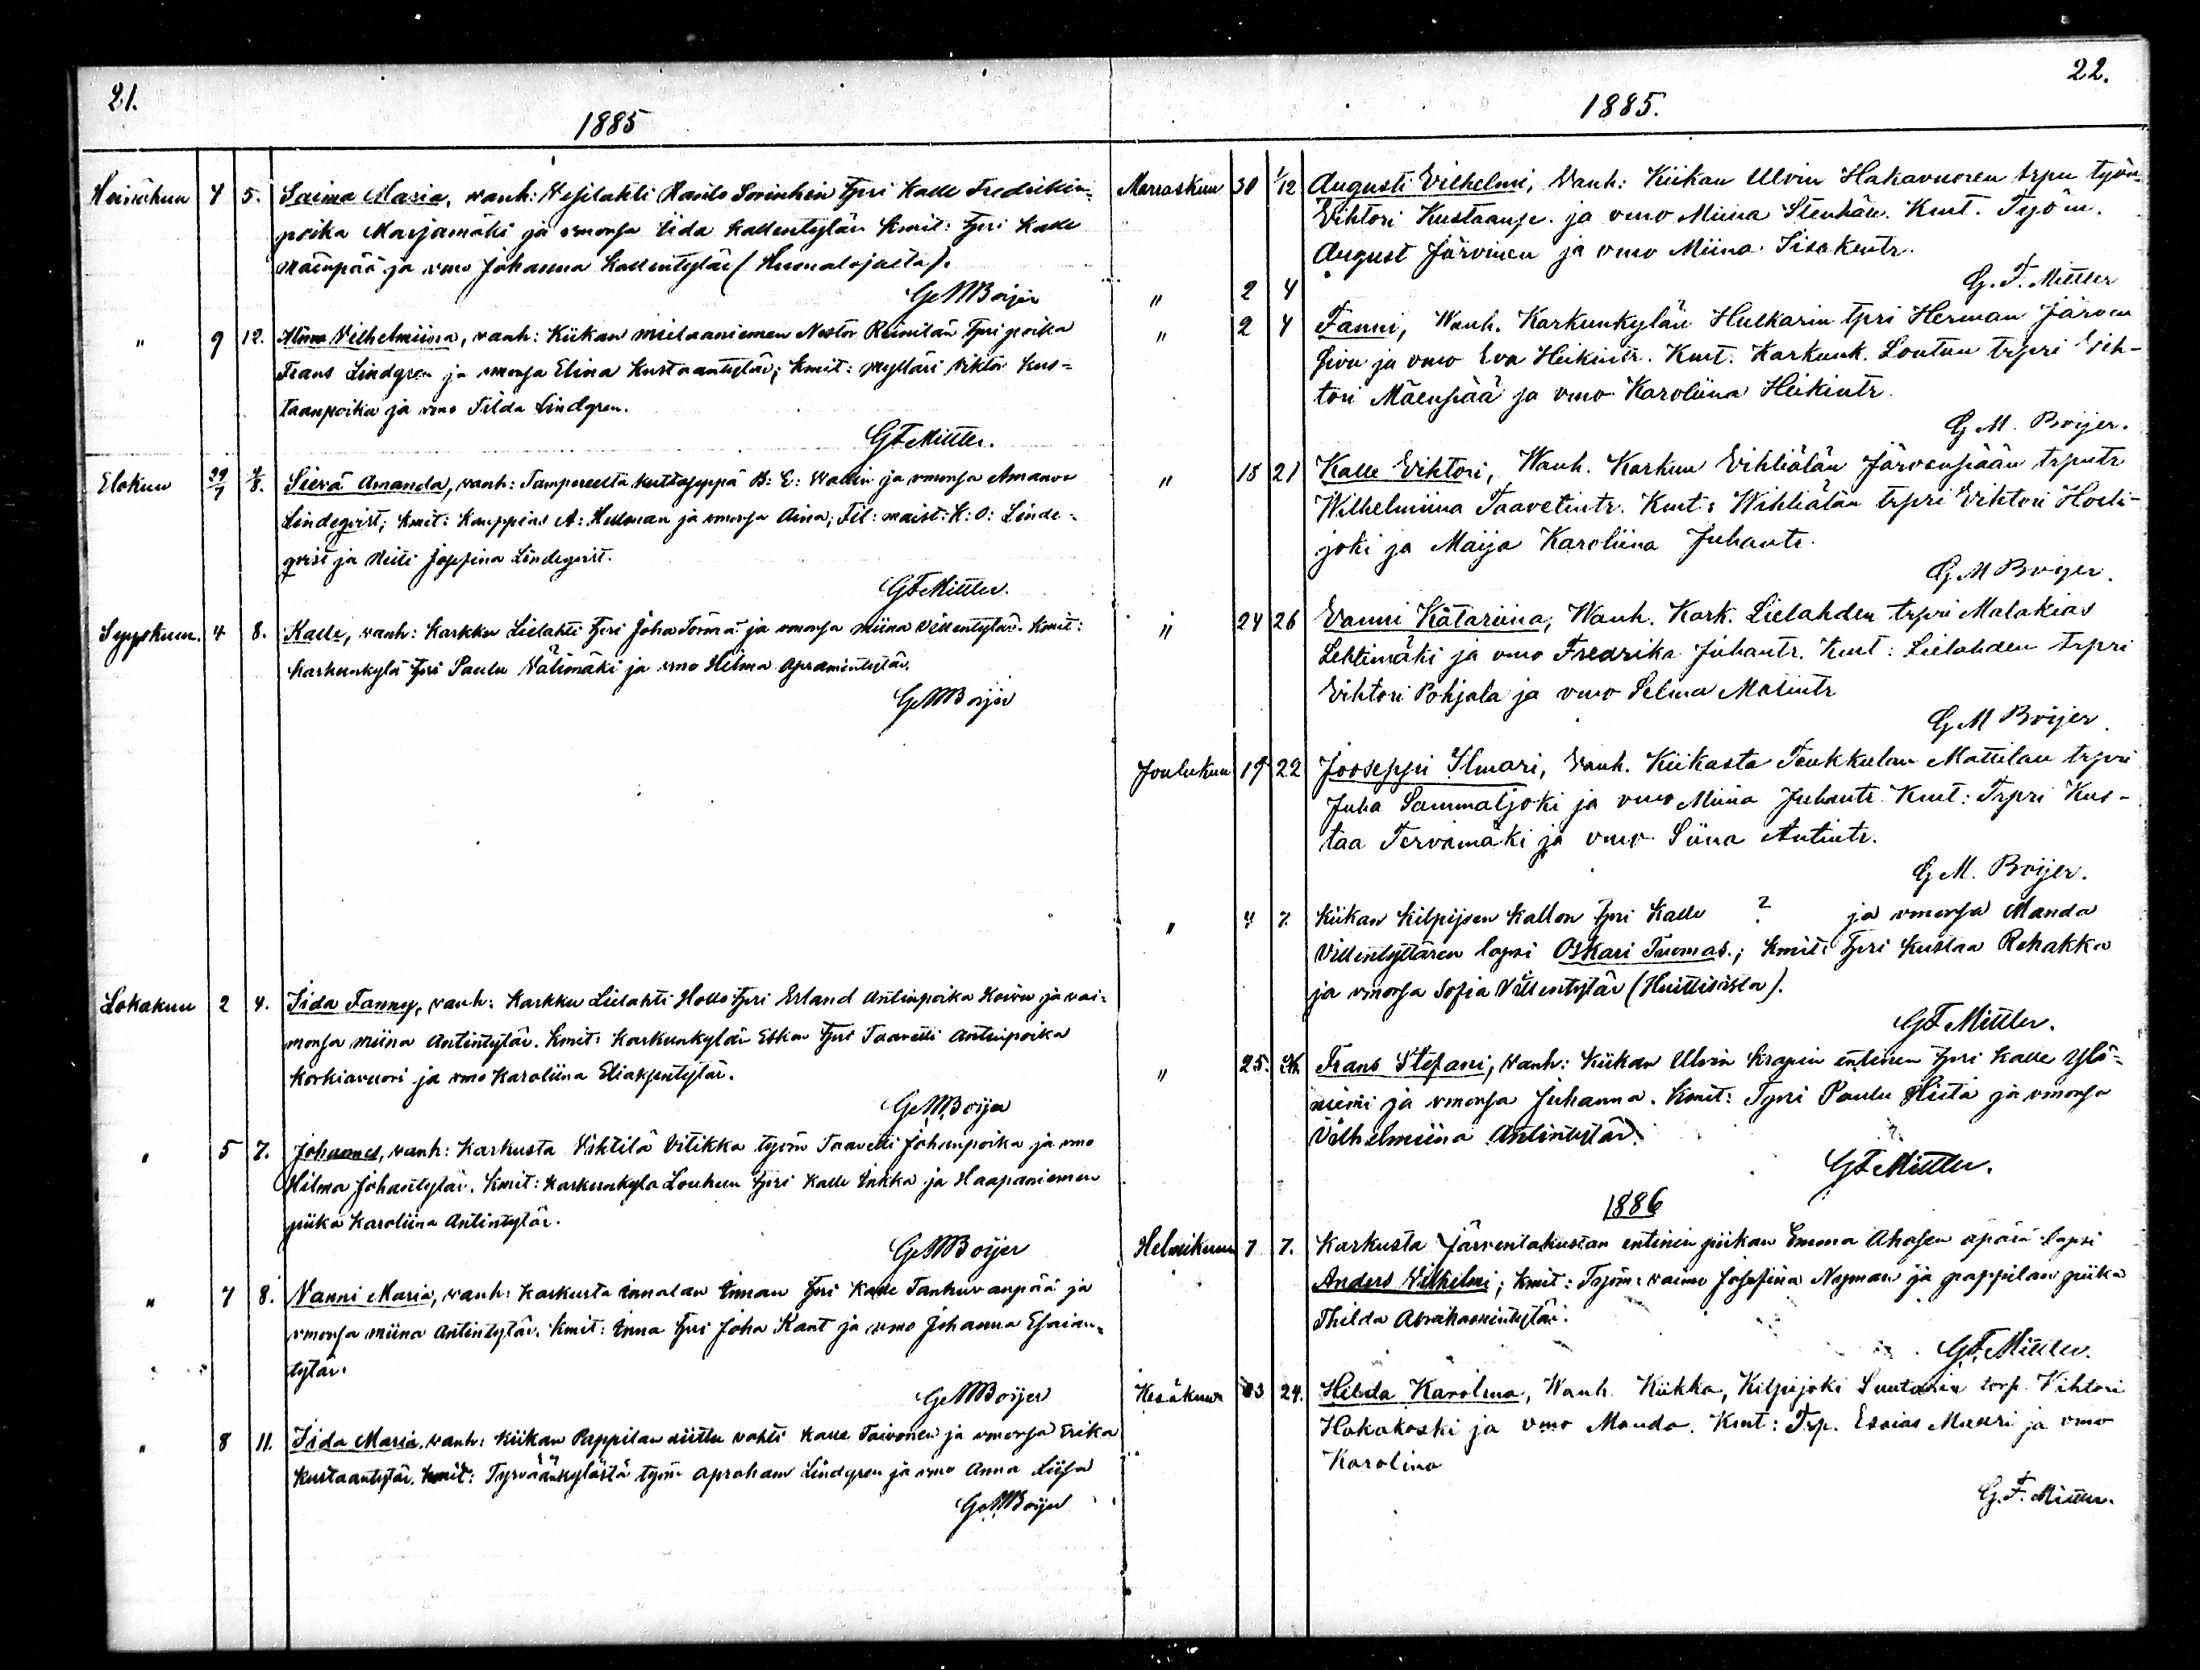 21.
1885
Heinäkuu 4 5. Saima Maria, vanh: Vesilahti Rauto Tpri Kalle Fredrikin-
poika Marjamäki ja vmonsa Iida Kallentytär Kmit: Tpri Kalle
Mäenpää ja vmo Johanna Kallentytär
GMBoijer
" 9 12. Vilhelmiina, vanh: Kiikan Nestor Tpri poika
Frans Lindgren ja vmonsa Elina Kustaantytär; Kmit: Mylläri Viktor Kus-
taanpoika ja vmo Tilda Lindgren.
GFMittler.
Elokuu 29/7 4/8. Sievä Amanda, vanh: Tampereelta kultaseppä B: E: Wallin ja vmonsa Amanda
Lindeqvist; Kmit: Kauppias A: Hellman ja vmonsa Aina; Fil: maist: K: O: Linde-
qvist ja Neiti Josefina Lindeqvist.
GFMittler.
Syyskuu. 4 8. Kalle, vanh: Karkku Lielahti Tpri Joha Törmä ja vmonsa Miina Villentytär. Kmit:
Karkunkylä Tpri Paulu Välimäki ja vmo Hilma Apramintytär.
GMBoijer
Lokakuu 2 4. Iida Fanny, vanh: Karkku Lielahti Hollo Tpri Erland Antinpoika Koivu ja vai-
monsa Miina Antintytär. Kmit: Karkunkylän Eskon Tpri Taavetti Antinpoika
Korkiavuori ja vmo Karoliina Eliaksentytär.
GMBoijer
" 5 7. Johannes, vanh: Karkusta Vitikka työm Taavetti Johanpoika ja vmo
Hilma Johantytär. Kmit: Karkunkylä Louhun Tpri Kalle Inkka ja Haapaniemen
piika Karoliina Antintytär.
GMBoijer
" 7 8. Nanni Maria, vanh: Karkusta Innalan Innan Tpri Kalle Tanhuvanpää ja
vmonsa Miina Antintytär. Kmit: Inna Tpri Joha Kant ja vmo Johanna Esaian-
tytär.
GMBoijer
" 8 11. Iida Maria, vanh: Kiikan Pappilan niittu vahti Kalle Toivonen ja vmonsa Erika
Kustaantytär. Kmit: Tyrväänkylästä työm Apraham Lindgren ja vmo Anna Liisa
GMBoijer
22.
1885.
Marraskuu 30 1/12 Augusti Vilhelmi, Vanh: Kiikan Ulvin Hakavuoren trpn työm
Vihtori Kustaanp. ja vmo Miina Stenhäll. Kmt. Työm.
August Järvinen ja vmo Miina Iisakintr.
G. F. Mittler
" 2 4
" 2 4 Fanni, Wanh. Karkunkylän Hulkarin tpri Herman Järven
sivu ja vmo Eva Heikintr. Kmt. Karkunk. Loutun trpri Vih-
tori Mäenpää ja vmo Karoliina Heikintr.
G. M. Boijer.
" 18 21 Kalle Vihtori, Wanh. Karkun Vihliälän Järvenpään trpntr
Wilhelmiina Taavetintr. Kmt: Wihliälän trpri Vihtori Hosti-
joki ja Maija Karoliina Juhantr.
G. M Boijer.
" 24 26 Vanni Katariina, Wanh. Kark. Lielahden trpri Malakias
Lehtimäki ja vmo Fredrika Juhantr. Kmt: Lielahden trpri
Vihtori Pohjala ja vmo Selma Matintr
G. M Boijer.
Joulukuu 19 22 Jooseppi Ilmari, Vanh. Kiikasta Teukkulan Mattilan trpri
Juha Sammaljoki ja vmo Miina Juhantr. Kmt: Trpri Kus-
taa Tervamäki ja vmo Siina Antintr.
G. M. Boijer.
" 4 7. Kiikan Kilpijoen Kallon Tpri Kalle ? ja vmonsa Manda
Villentyttären lapsi Oskari Tuomas.; Kmit: Tpri Kustaa Rekakka
ja vmonsa Sofia Villentytär (Huittisista).
GFMittler.
" 25. Frans Stefani, vanh: Kiikan Ulvin Krapin entinen Tpri Kalle Ylö-
niemi ja vmonsa Juhanna. Kmit: Tpri Paulu Hiita ja vmonsa
Vilhelmiina Antintytär.
GFMittler.
1886
Helmikuu 7 7. Karkusta Järventakustan entinen piikan Emma Ahosen äpärä lapsi
Anders Vilhelmi; Kmit: Työm: vaimo Josefina Nyman ja pappilan piika
Thilda Abrahamintytär.
GFMittler.
Kesäkuu 23 24. Hilda Karolina, Wanh. Kiikka, Kilpijoki Suutarin torp. Vihtori
Hakakoski ja vmo Manda. Kmt: Trp. Esaias Muuri ja vmo
Karolina
G. F. Mittler.